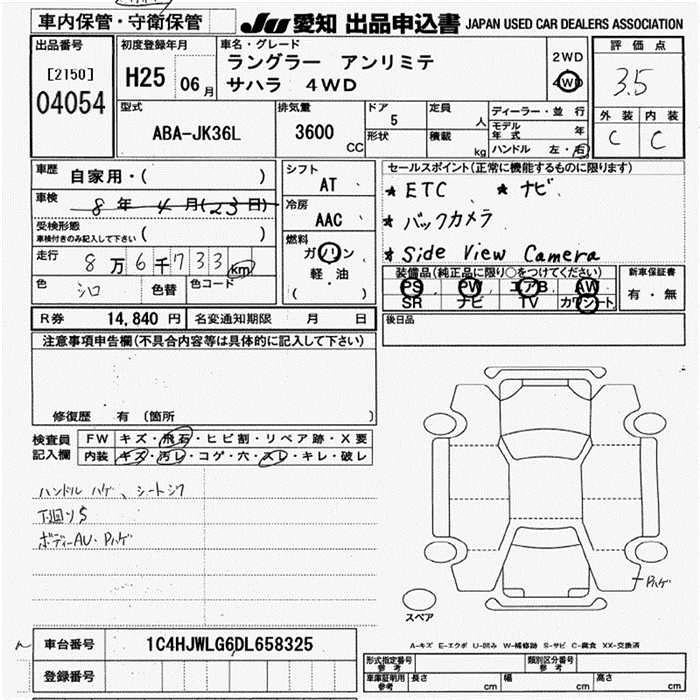 車内保管・守衛保管
JU 愛知 出品申込書 JAPAN USED CAR DEALERS ASSOCIATION
出品番号
[2150]
04054
初度登録年月
H25 06月
車名・グレード
ラングラー アンリミテ
サハラ 4WD
2WD
4WD
評価点
3.5
外装 内装
C C
型式
ABA-JK36L
排気量
3600 CC
ドア
5
形状
定員 人
積載 kg
ディーラー・並行
モデル年式 年
ハンドル 左・右
車歴 自家用・( )
車検 8年4月(23日)
受検形態
車検付きのみ記入して下さい ( )
走行 8万6千733km
色 シロ 色替 色コード
シフト
AT
冷房
AAC
燃料
ガソリン
軽・油
( )
セールスポイント(正常に機能するものに限ります)
★ ETC ★ ナビ
★ バックカメラ
★ Side View Camera
装備品(純正品に限り○をつけてください)
PS PW エアB AW
SR ナビ TV カワシート
新車保証書
有・無
R券 14,840円 名変通知期限 月 日
後日品
注意事項申告欄(不具合内容等は具体的に記入して下さい)
修復歴 有 〔箇所 〕
検査員記入欄
FW キズ・飛石・ヒビ割・リペア跡・X要
内装 キズ・汚レ・コゲ・穴・スレ・キレ・破レ
ハンドルハゲ、シートシワ
下廻りS
ボディーAU・Pハゲ
Pハゲ
スペア
A-キズ E-エクボ U-凹み W-補修跡 S-サビ C-腐食 XX-交換済
車台番号 1C4HJWLG6DL658325
登録番号
形式指定番号 参考
類別区分番号 参考
車庫証明用 参考 長さ cm 幅 cm 高さ cm